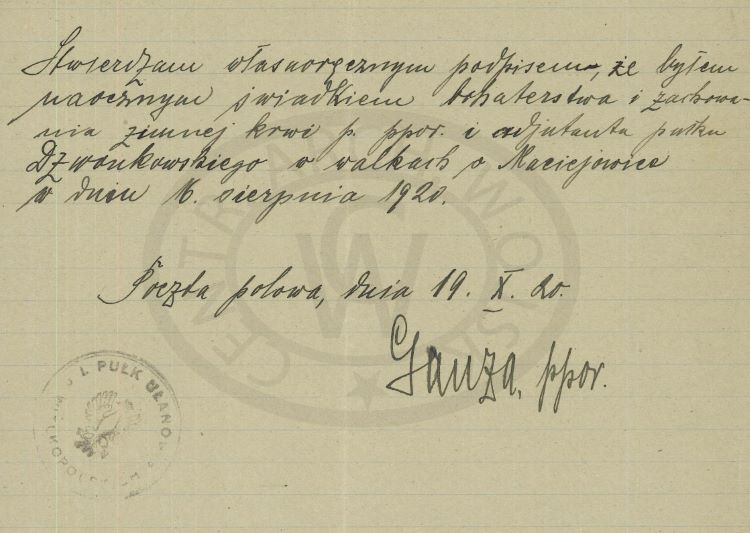 Stwierdzam własnoręcznym podpisem, że byłem
naocznym świadkiem bohaterstwa i zachowa-
nia zimnej krwi p. ppor. i adjutanta pułku
Dzwonkowskiego w walkach o Maciejowice
w dniu 16. sierpnia 1920.
Poczta polowa, dnia 19. X. 20.
Gauza, ppor.
PUŁK UŁANÓW
CENTRALNE
CW